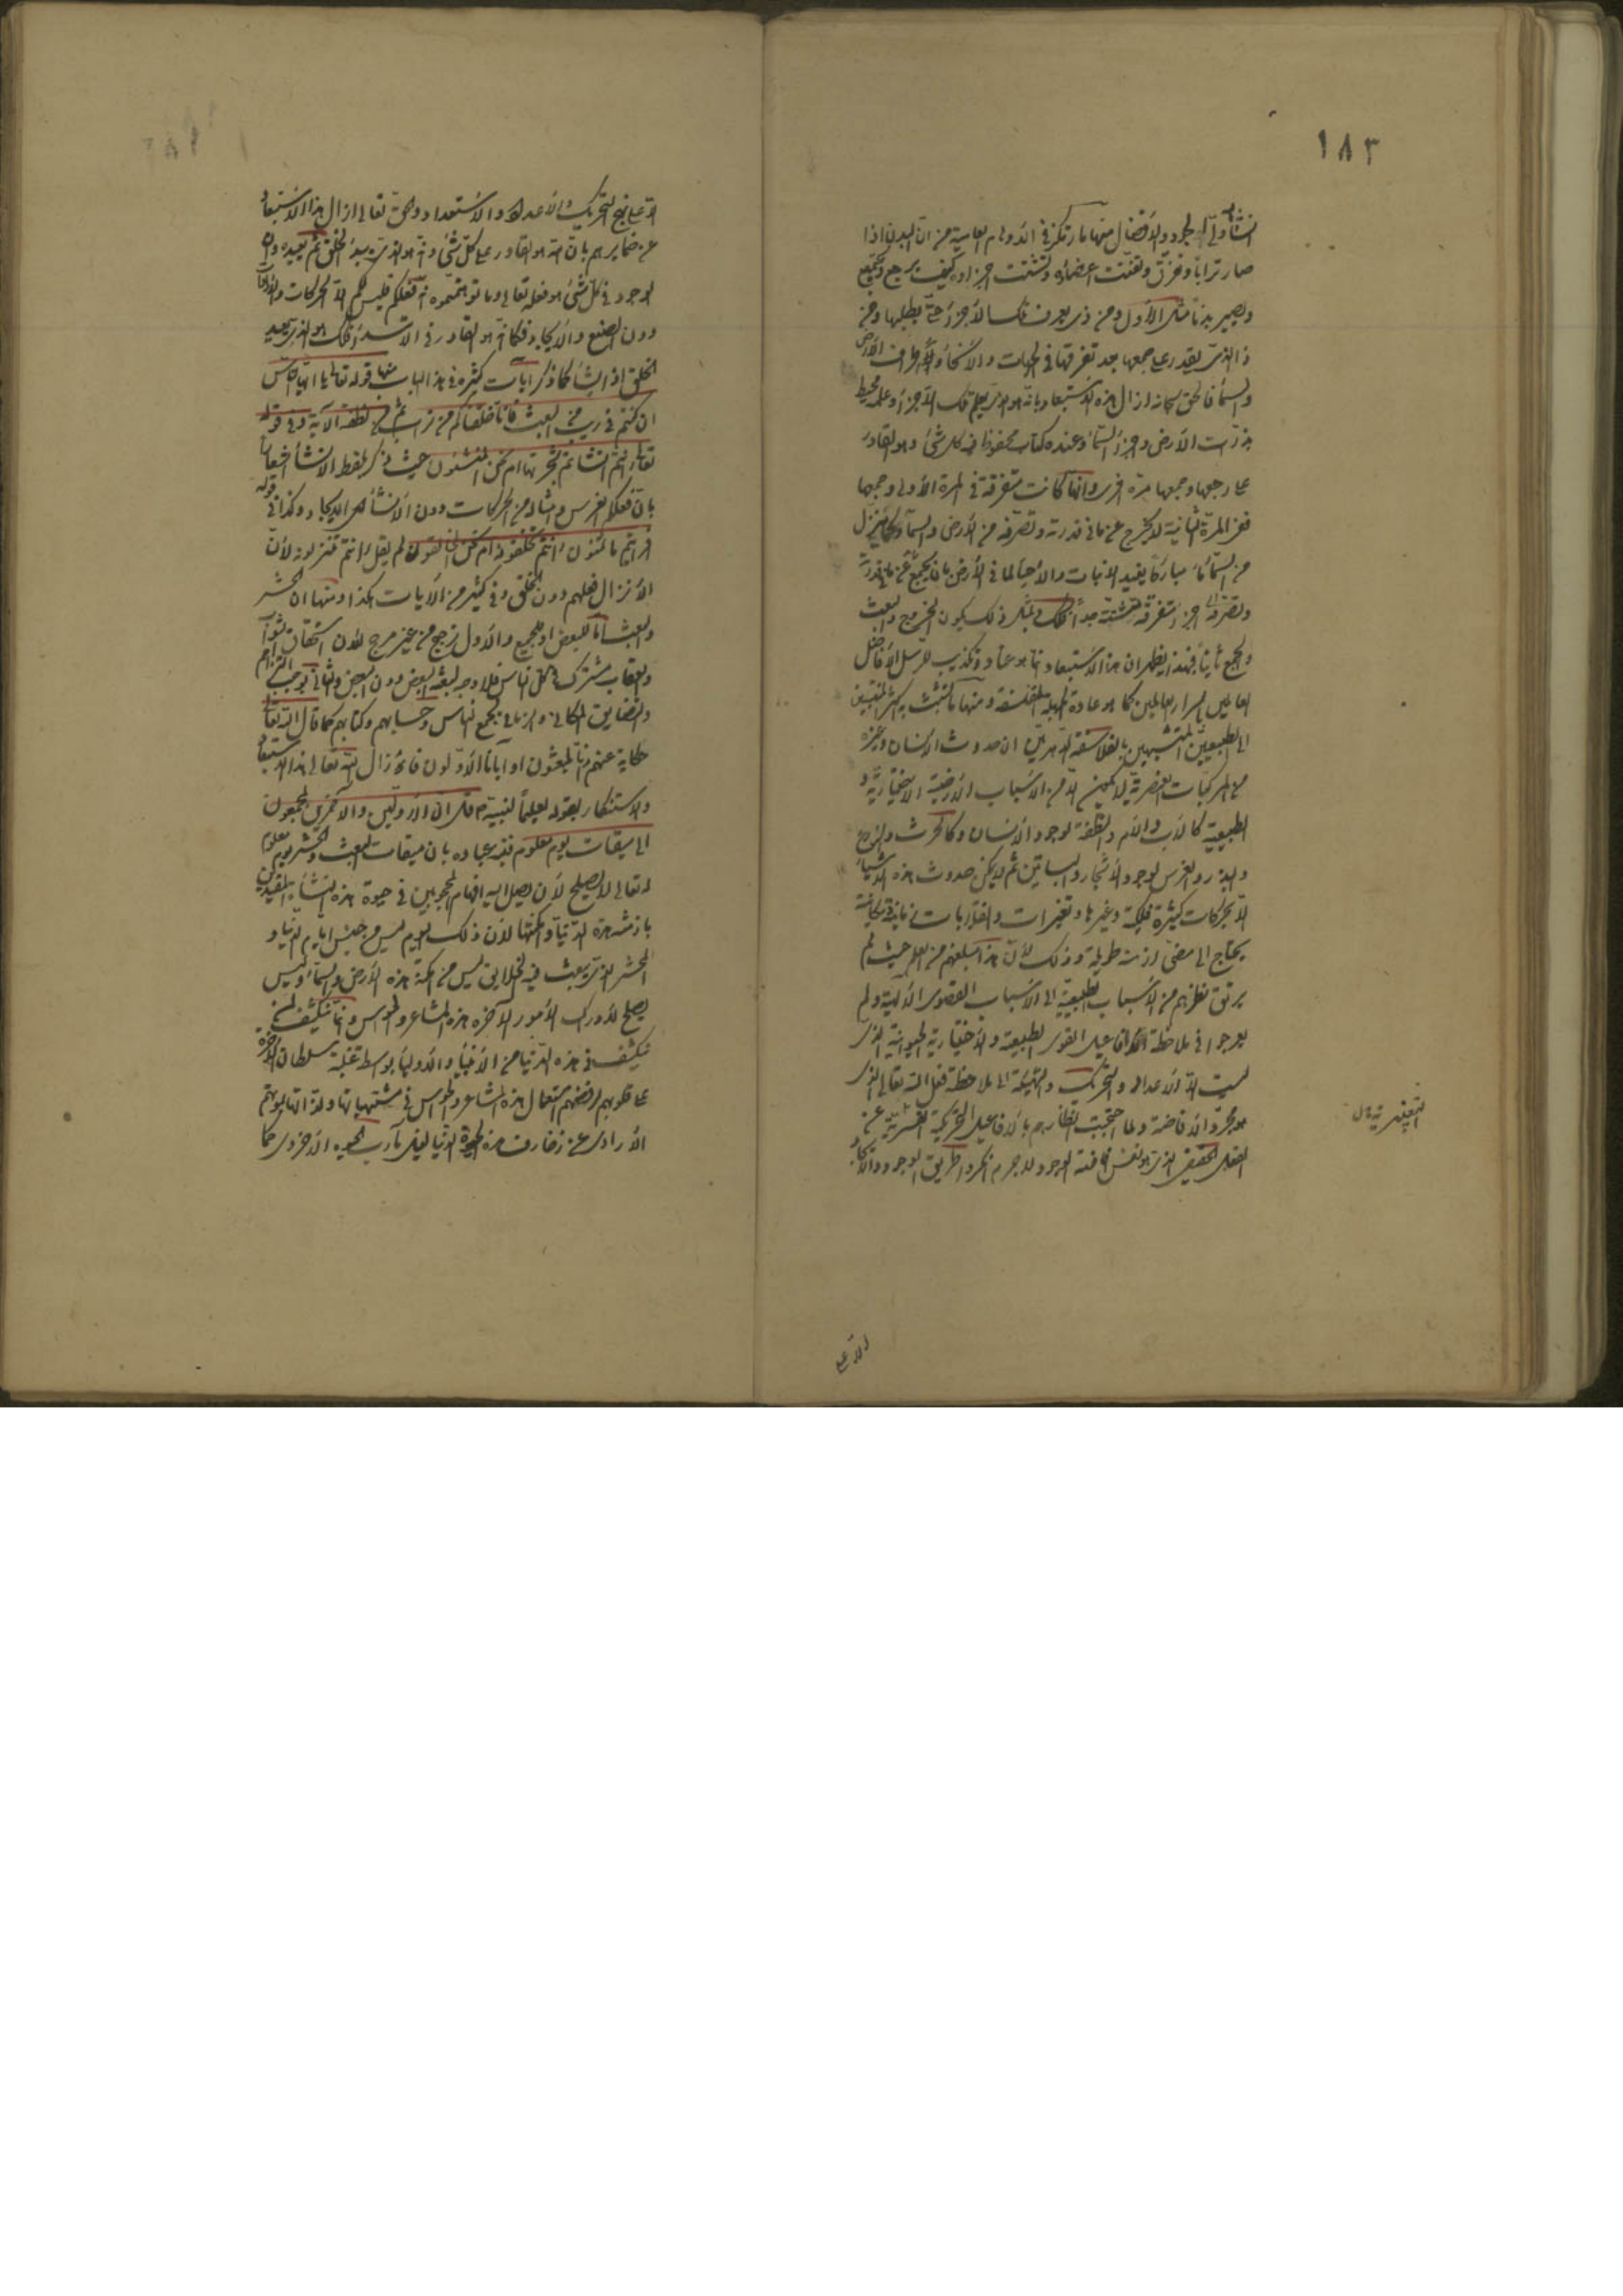 ١٨٣
النشأة ولى الجود والافضال منها ما ارتكز فى الاوهام العامية من ان البدن اذا
صار ترابا وتفرق وتفتت اعضاؤه وتشتت اجزاؤه كيف يرجع ويجتمع
ويصير بدنا مثل الاول ومن ذى يعرف تلك الاجزاء حتى يطلبها ومن
ذا الذى يقدر على جمعها بعد تفرقها فى الجهات والانحاء واطراف الارض
والسماء فالحق سبحانه ازال هذه الاستبعاد بانه هو الذى يعلم تلك الاجزاء وعلمه محيط
بذرات الارض واجزاء السماء وعنده كتاب محفوظ فيه كل شئ وهو القادر
على رجعها وجمعها مرة اخرى وانها كانت متفرقة فى المرة الاولى وجمعها
فعن المرة الثانية لا يخرج عما فى قدرته وتصرفه من الارض والسماء وكما ينزل
من السماء ماء مباركا يفيد الانبات والاحياء لما فى الارض بان يجمع عن
وتصرفه اجزاء متفرقة متشتتة جدا فكذلك بمثل ذلك يكون الخروج والبعث
والجمع ثانيا فبهذا يظهر ان هذا الاستبعاد انما هو عناد وتكذيب للرسل الافاضل
العالمين باسرار العالمين كما هو عادة الجهلة المتفلسفة ومنها ما تشبث به اكثر المنتسبين
الى الطبيعيين المتشبهين بالفلاسفة الدهريين ان حدوث الانسان وغيره
من المركبات العنصرية لا يمكن الا من الاسباب الارضية الاختيارية و
الطبيعية كالاب والام والنطفة لوجود الانسان وكالحرث والزرع
والبذر والغرس لوجود الاشجار والبساتين ثم لا يمكن حدوث هذه الاشياء
الا بحركات كثيرة فلكية وغيرها وتغيرات وانقلابات زمانية مكانية
يحتاج الى مضى ازمنة طويلة وذلك لان هذا مبلغهم من العلم حيث لم
يرتق نظرهم من الاسباب الطبيعية الى الاسباب القصوى الالهية ولم
يعرجوا فى ملاحظة افاعيل القوى الطبيعية والاختيارية الحيوانية التى
ليست الا الاعداد والتحريك والتهيئة الى ملاحظة فعل الله تعالى الذى
هو مجرد الافاضة ولما احتجبت انظارهم بالافاعيل التحريكية القسرية عن
الفعل الحقيقى الذى هو نفس افاضة الوجود لا جرم انكروا طريق الوجود والايجاد
الا على
الا على نهج التحريك والاعداد والاستعداد والحق تعالى ازال هذا الاستبعاد
عن ضمايرهم بان الله هو القادر على كل شئ وانه هو الذى يبدؤ الخلق ثم يعيده وان
الوجود فى كل شئ هو فعله تعالى وما توهمتموه انه فعلكم فليس لكم الا الحركات
دون الصنع والايجاد فكما انه هو القادر فى الابتداء فكذلك هو الذى يعيد
الخلق اذا يشاء كما ذكر آيات كثيرة فى هذا الباب منها قوله تعالى يا ايها الناس
ان كنتم فى ريب من البعث فانا خلقناكم من تراب ثم من نطفة الاية وفى قوله
تعالى ءانتم انشاتم شجرتها ام نحن المنشئون حيث ذكر بلفظ الانشاء اشعارا
بان فعلكم الغرس وامثاله من الحركات دون الانشاء اى الايجاد وكذا فى قوله
افرايتم ما تمنون ءانتم تخلقونه ام نحن الخالقون لم يقل ءانتم تنزلونه لان
الانزال فعلهم دون الخلق وفى كثير من الايات هكذا ومنها ان الحشر
والبعث اما للبعض او للجميع والاول ترجيح من غير مرجح لان استحقاق الثواب
والعقاب مشترك فى كل الناس فلا وجه لبعثة البعض دون البعض والثانى يوجب التزاحم
والتضايق المكانى والزمانى لجمع الناس وحسابهم وكتابهم كما قال الله تعالى
حكاية عنهم ائنا لمبعوثون او اباؤنا الاولون فازال الله تعالى هذا الاستبعاد
والاستنكار بقوله تعليما لنبيه قل ان الاولين والاخرين لمجموعون
الى ميقات يوم معلوم فنبه عباده بان ميقات البعث والحشر يوم معلوم
له تعالى لا يصلح لان يصل اليه افهام المحجوبين فى حيوة هذه النشأة المقيدين
بازمنة هذه الدنيا وامكنتها لان ذلك اليوم ليس من جنس ايام الدنيا و
المحشر الذى يبعث فيه الخلايق ليس من امكنة هذه الارض والسماء وليس
يصلح لادراك الامور الاخرة هذه المشاعر والحواس وانما تنكشف لمن
تنكشف فى هذه الدنيا من الانبياء والاولياء بواسطة غلبة سلطان الاخرة
على قلوبهم لرفضهم استعمال هذه المشاعر والحواس فى مشتهياتها ولذاتها لموتهم
الارادى عن زخارف هذه الحيوة الدنيا لنيل مآرب الحيوة الاخروى كما